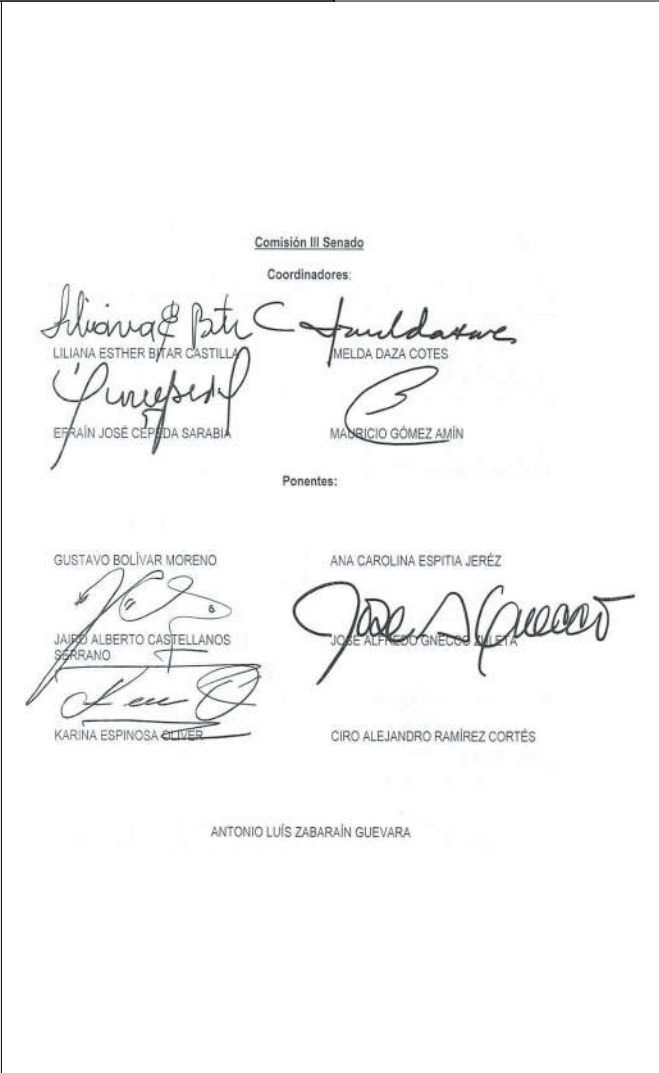 Comisión III Senado
Coordinadores:
LILIANA ESTHER BITAR CASTILLA
IMELDA DAZA COTES
EFRAÍN JOSÉ CEPEDA SARABIA
MAURICIO GÓMEZ AMÍN
Ponentes:
GUSTAVO BOLÍVAR MORENO
ANA CAROLINA ESPITIA JERÉZ
JAIRO ALBERTO CASTELLANOS
SERRANO
Jose A Gnecco
JOSE ALFREDO GNECCO ZULETA
KARINA ESPINOSA OLIVER
CIRO ALEJANDRO RAMÍREZ CORTÉS
ANTONIO LUÍS ZABARAÍN GUEVARA